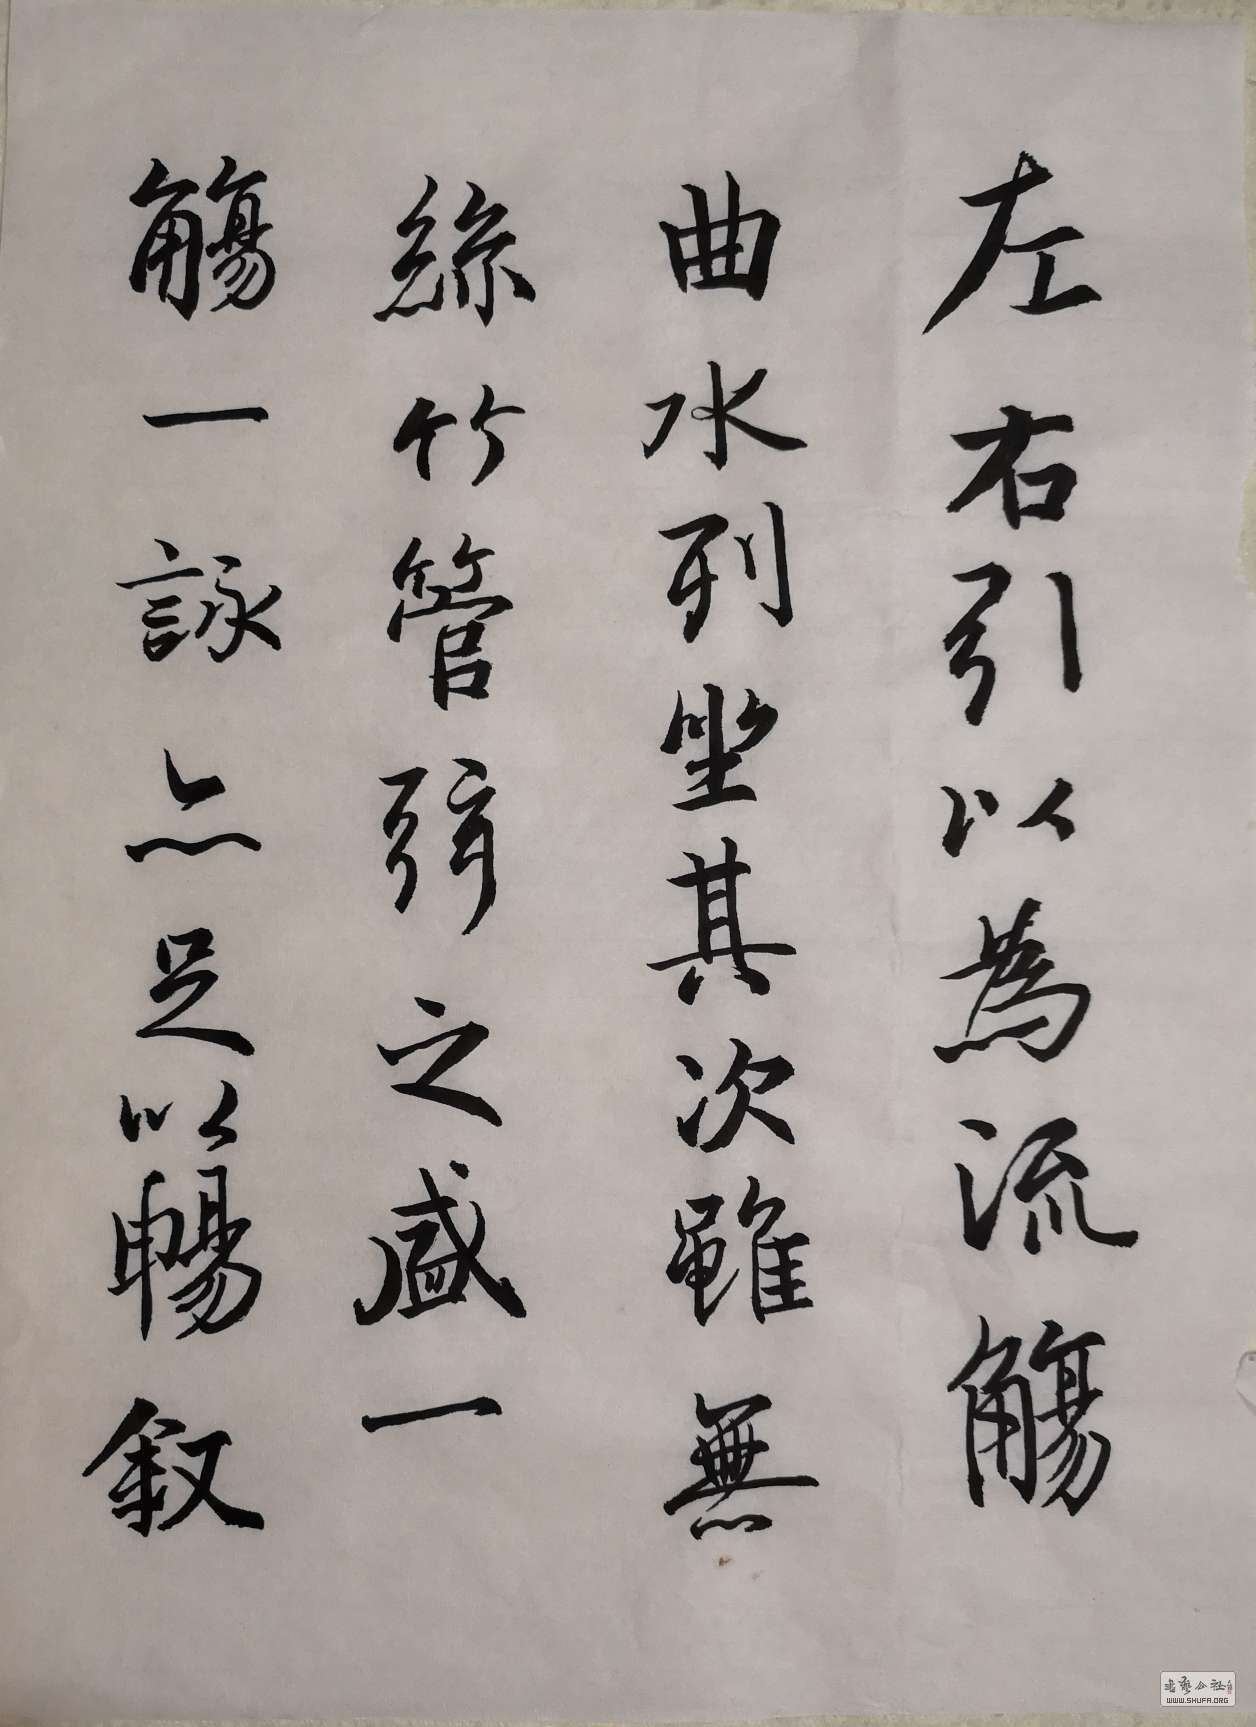 左右引以為流觴
曲水列坐其次雖無
絲竹管弦之盛一
觴一詠亦足以暢叙
書藝公社
WWW.SHUFA.ORG